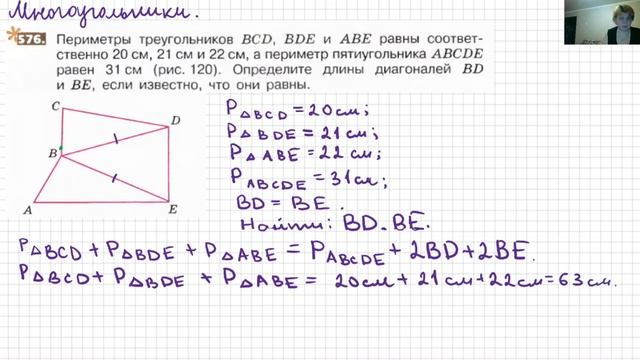 Многоугольники.
576. Периметры треугольников BCD, BDE и ABE равны соответ-
ственно 20 см, 21 см и 22 см, а периметр пятиугольника ABCDE
равен 31 см (рис. 120). Определите длины диагоналей BD
и BE, если известно, что они равны.
C
D
B
A
E
P△BCD = 20 см;
P△BDE = 21 см;
P△ABE = 22 см;
PABCDE = 31 см;
BD = BE.
Найти: BD. BE.
P△BCD + P△BDE + P△ABE = PABCDE + 2BD + 2BE.
P△BCD + P△BDE + P△ABE = 20см + 21см + 22см = 63см.